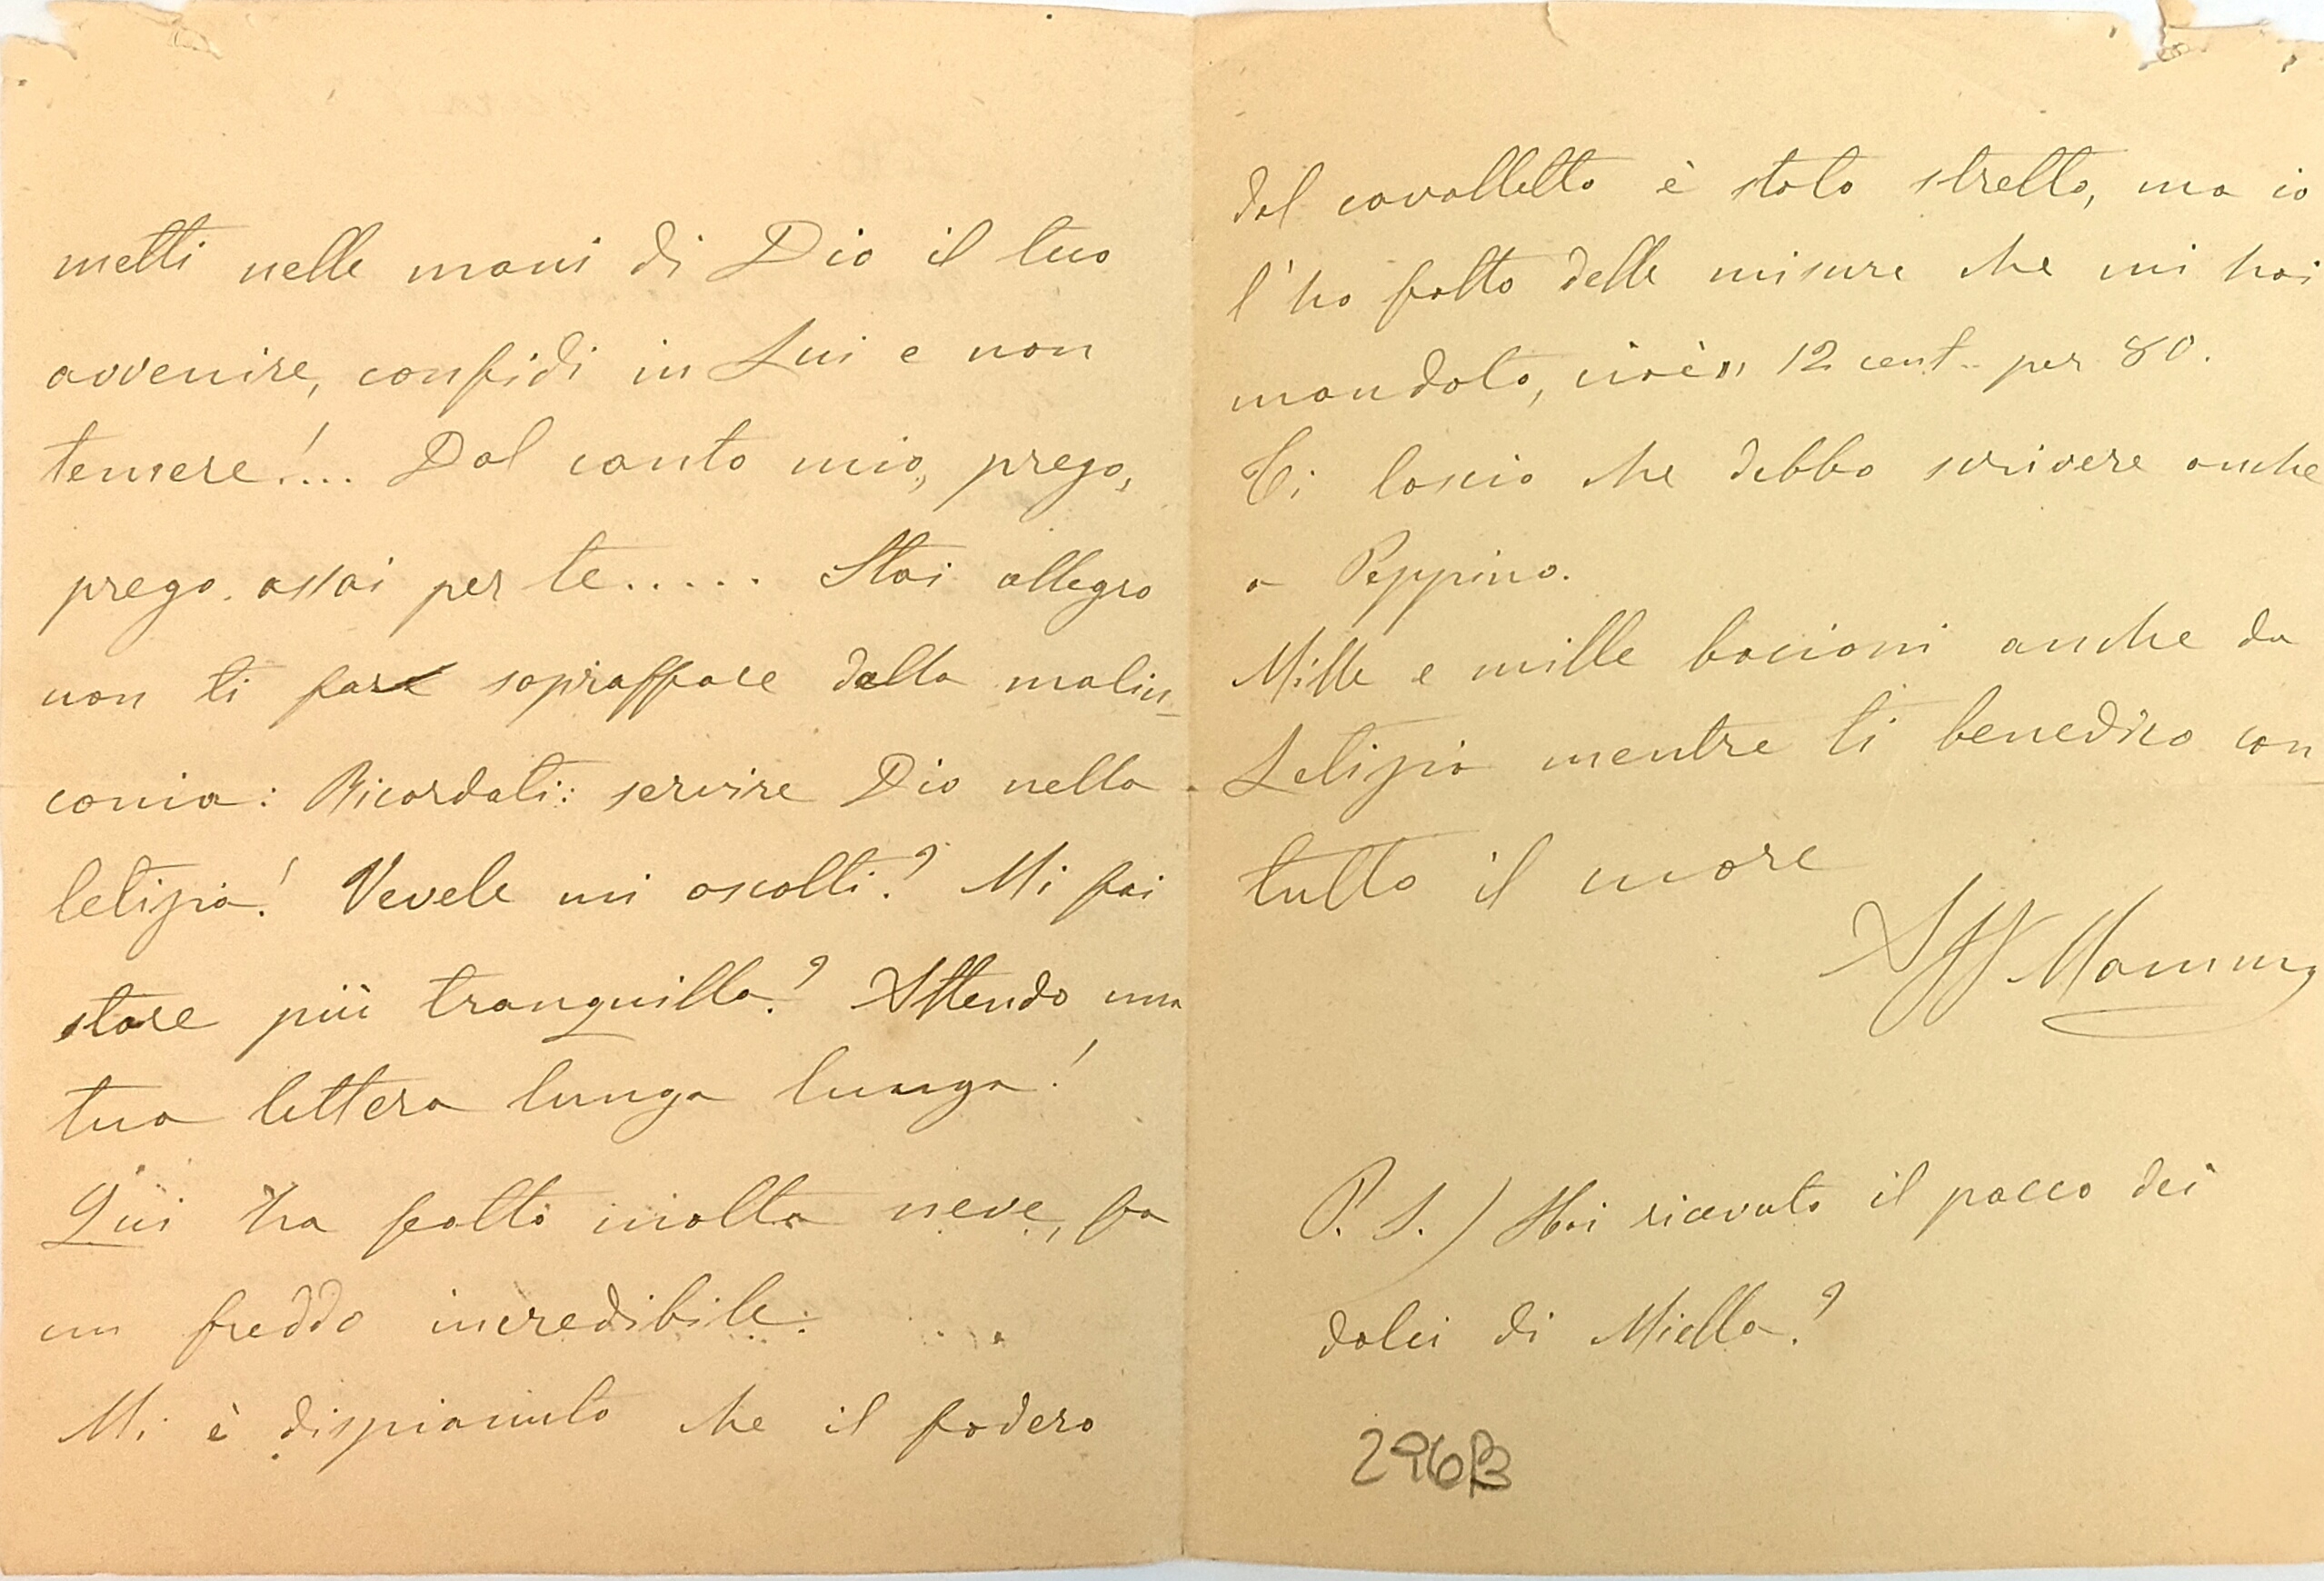 metti nelle mani di Dio il tuo
avvenire, confidi in Lui e non
temere!... Dal canto mio, prego,
prego assai per te..... Stai allegro
non ti fare sopraffare dalla malin-
conia: Ricordati: servire Dio nella
letizia! Vevele mi ascolti? Mi fai
stare più tranquilla? Attendo una
tua lettera lunga lunga!
Qui ha fatto molta neve, fa
un freddo incredibile.
Mi è dispiaciuto che il fodero
del cavalletto è stato stretto, ma io
l'ho fatto delle misure che mi hai
mandato, cioè 12 cent. per 80.
Ti lascio che debbo scrivere anche
a Peppino.
Mille e mille bacioni anche da
Letizia mentre ti benedico con
tutto il cuore
Aff Mamma
P. S.) Hai ricevuto il pacco dei
dolci di Miella?
296B